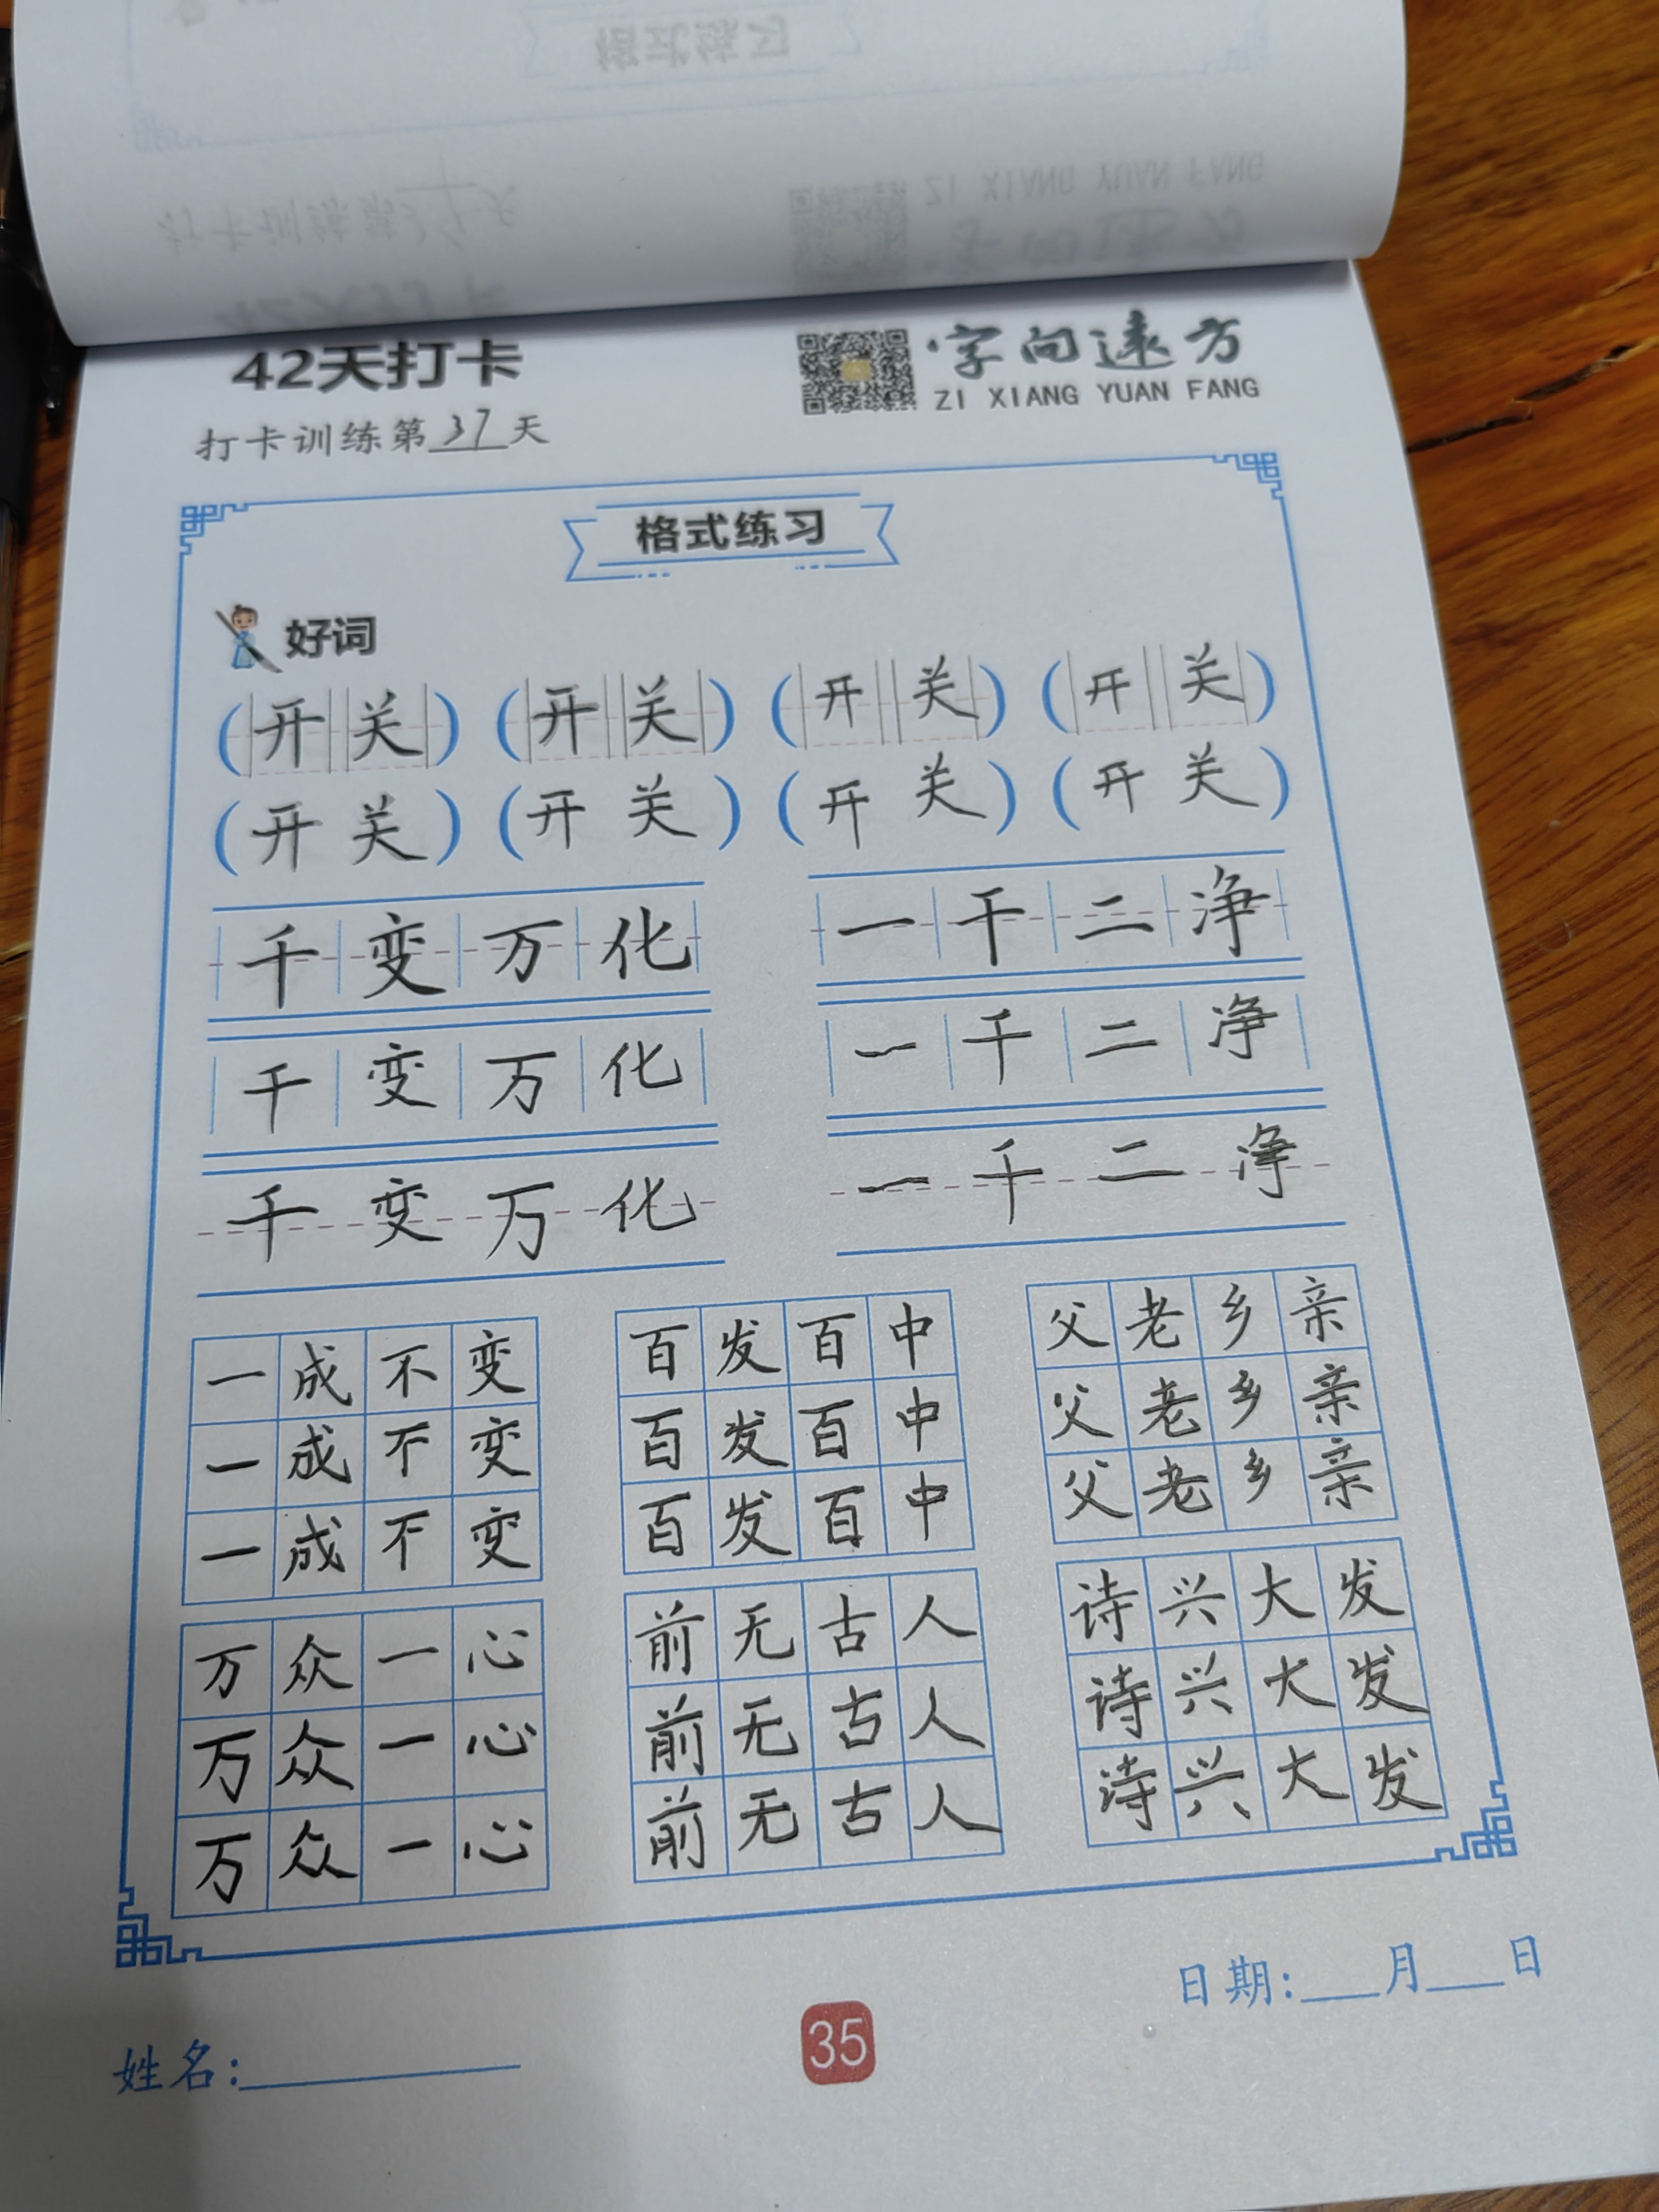 格式练习
42天打卡
字向远方
ZI XIANG YUAN FANG
打卡训练第37天
格式练习
好词
(开关) (开关) (开关) (开关)
(开关) (开关) (开关) (开关)
千变万化 一干二净
千变万化 一千二净
千变万化 一千二净
一成不变 百发百中 父老乡亲
一成不变 百发百中 父老乡亲
一成不变 百发百中 父老乡亲
万众一心 前无古人 诗兴大发
万众一心 前无古人 诗兴大发
万众一心 前无古人 诗兴大发
日期:___月___日
35
姓名: